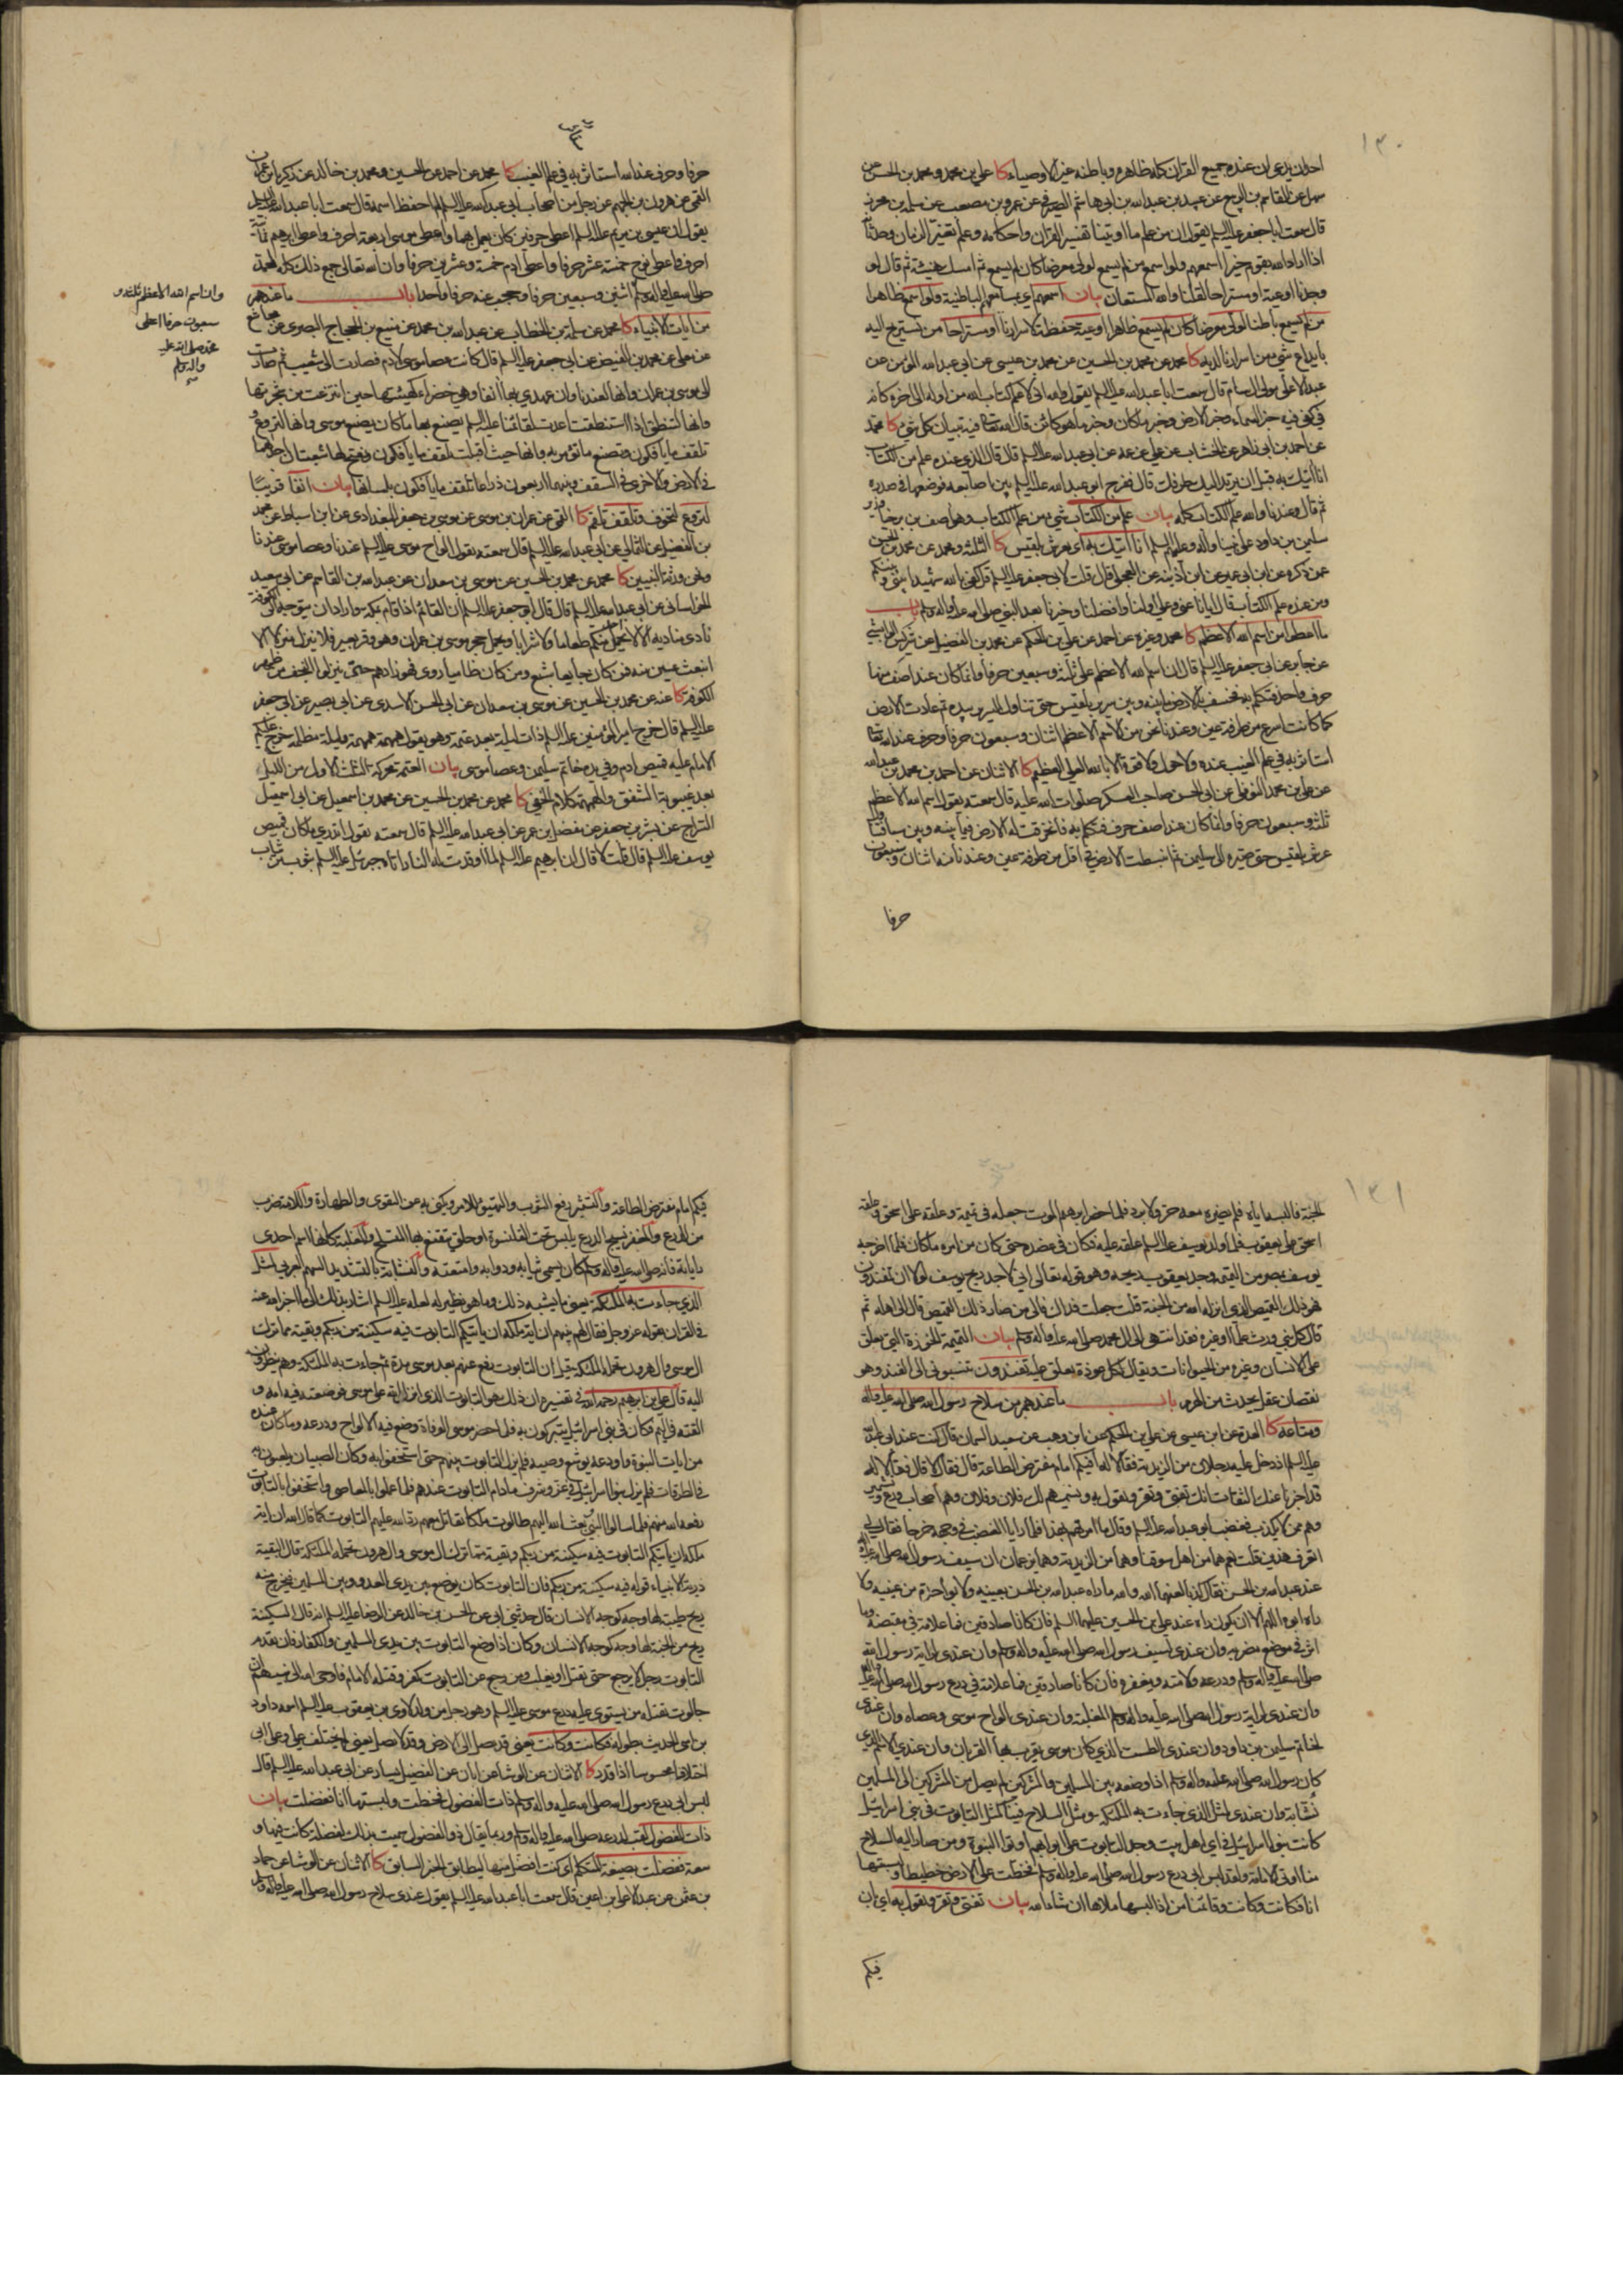 ١٣٠
احد ان يدعي ان عنده جميع القران كله ظاهره وباطنه غير الاوصياء كا علي بن محمد ومحمد بن الحسن عن
سهل عن القاسم بن الربيع عن عبيد بن عبدالله بن ابي هاشم الصيرفي عن عمرو بن مصعب عن سلمة بن محرز
قال سمعت اباجعفر عليه السلم يقول ان من علم ما اوتينا تفسير القران واحكامه وعلم تغيير الزمان وحدثانه
اذا اراد الله بقوم خيرا اسمعهم ولو اسمع من لم يسمع لولى معرضا كان لم يسمع ثم امسك هنيئة ثم قال لو
وجدنا اوعية او مستراحا لقلنا والله المستعان بيان اسمعهم اي بمسامعهم الباطنية ولو اسمع ظاهرا
من لم يسمع باطنا لولى معرضا كان لم يسمع ظاهرا اوعية حفظة لاسرارنا او مستراحا من نستريح اليه
بايداع شيء من اسرارنا لديه كا محمد عن محمد بن الحسين عن محمد بن عيسى عن ابي عبدالله المؤمن عن
عبدالاعلى مولى ال سام قال سمعت ابا عبدالله عليه السلم يقول والله اني لاعلم كتاب الله من اوله الى اخره كانه
في كفي فيه خبر السماء وخبر الارض وخبر ما كان وخبر ما هو كائن قال الله تعالى فيه تبيان كل شيء كا محمد
عن احمد بن ابي زاهر عن الخشاب عن علي عن عمه عن ابي عبدالله عليه السلم قال قال الذي عنده علم من الكتاب
انا اتيك به قبل ان يرتد اليك طرفك قال ففرج ابو عبدالله عليه السلم بين اصابعه فوضعها في صدره
ثم قال وعندنا والله علم الكتاب كله بيان علم من الكتاب شيء من علم الكتاب وهو اصف بن برخيا وزير
سليمن بن داود على نبينا واله وعليهم السلم انا اتيك به اي بعرش بلقيس كا الثلثة ومحمد عن محمد بن الحسن
عمن ذكره عن ابن ابي عمير عن ابن اذينة عن العجلي قال قلت لابي جعفر عليه السلم قل كفى بالله شهيدا بيني وبينكم
ومن عنده علم الكتاب قال ايانا عنى وعلي اولنا وافضلنا وخيرنا بعد النبي صلى الله عليه واله وسلم باب
ما اعطوا من اسم الله الاعظم كا محمد وغيره عن احمد عن علي بن الحكم عن محمد بن الفضيل عن شريس الوابشي
عن جابر عن ابي جعفر عليه السلم قال ان اسم الله الاعظم على ثلثة وسبعين حرفا وانما كان عند اصف منها
حرف واحد فتكلم به فخسف بالارض ما بينه وبين سرير بلقيس حتى تناول السرير بيده ثم عادت الارض
كما كانت اسرع من طرفة عين وعندنا نحن من الاسم الاعظم اثنان وسبعون حرفا وحرف عند الله تعالى
استاثر به في علم الغيب عنده ولا حول ولا قوة الا بالله العلي العظيم كا الاثنان عن احمد بن محمد بن عبدالله
عن علي بن محمد النوفلي عن ابي الحسن صاحب العسكر صلوات الله عليه قال سمعته يقول اسم الله الاعظم
ثلثة وسبعون حرفا وانما كان عند اصف حرف فتكلم به فانخرقت له الارض فيما بينه وبين سبا فتناول
عرش بلقيس حتى صيره الى سليمن ثم انبسطت الارض في اقل من طرفة عين وعندنا منه اثنان وسبعون
حرفا
حرفا وحرف عند الله استاثر به في علم الغيب كا محمد عن احمد عن الحسين ومحمد بن خالد عن زكريا بن عمران
القمي عن هرون بن الجهم عن رجل من اصحاب ابي عبدالله عليه السلم لم احفظ اسمه قال سمعت ابا عبدالله عليه السلم
يقول ان عيسى بن مريم عليه السلم اعطي حرفين كان يعمل بهما واعطي موسى اربعة احرف واعطي ابرهيم ثمانية
احرف واعطي نوح خمسة عشر حرفا واعطي ادم خمسة وعشرين حرفا وان الله تعالى جمع ذلك كله لمحمد
صلى الله عليه واله وسلم اثنين وسبعين حرفا وحجب عنه حرفا واحدا باب ما عندهم
وان اسم الله الاعظم ثلثة و
سبعون حرفا اعطى
محمد صلى الله عليه
واله وسلم
من ايات الانبياء كا محمد عن سلمة بن الخطاب عن عبدالله بن محمد عن منيع بن الحجاج البصري عن مجاشع
عن معلى عن محمد بن الفيض عن ابي جعفر عليه السلم قال كانت عصا موسى لادم فصارت الى شعيب ثم صارت
الى موسى بن عمران وانها لعندنا وان عهدي بها انفا وهي خضراء كهيئتها حين انتزعت من شجرتها
وانها لتنطق اذا استنطقت اعدت لقائمنا عليه السلم يصنع بها ما كان يصنع موسى وانها لتروع و
تلقف ما يافكون وتصنع ما تؤمر به وانها حيث اقبلت تلقف ما يافكون يفتح لها شعبتان احدهما
في الارض والاخرى في السقف وبينهما اربعون ذراعا تلقف ما يافكون بلسانها بيان انفا قريبا
لتروع لتخوف وتلقف تلقم كا القمي عن عمران بن موسى عن موسى بن جعفر البغدادي عن ابن اسباط عن محمد
بن الفضيل عن الثمالي عن ابي عبدالله عليه السلم قال سمعته يقول الواح موسى عليه السلم عندنا وعصا موسى عندنا
ونحن ورثة النبيين كا محمد عن محمد بن الحسين عن موسى بن سعدان عن عبدالله بن القاسم عن ابي سعيد
الخراساني عن ابي عبدالله عليه السلم قال قال ابو جعفر عليه السلم ان القائم اذا قام بمكة واراد ان يتوجه الى الكوفة
نادى مناديه الا لا يحمل احد منكم طعاما ولا شرابا ويحمل حجر موسى بن عمران وهو وقر بعير فلا ينزل منزلا الا
انبعث عين منه فمن كان جايعا شبع ومن كان ظاميا روى فهو زادهم حتى ينزلوا النجف من ظهر
الكوفة كا عنه عن محمد بن الحسين عن موسى بن سعدان عن ابي الحسن الاسدي عن ابي بصير عن ابي جعفر
عليه السلم قال خرج امير المؤمنين عليه السلم ذات ليلة بعد عتمة وهو يقول همهمة همهمة وليلة مظلمة خرج عليكم
الامام عليه قميص ادم وفي يده خاتم سليمن وعصا موسى بيان العتمة محركة الثلث الاول من الليل
بعد غيبوبة الشفق والهمهمة كلام الخفي كا محمد عن محمد بن الحسين عن محمد بن اسمعيل عن ابي اسمعيل
السراج عن بشر بن جعفر عن مفضل بن عمر عن ابي عبدالله عليه السلم قال سمعته يقول اتدري ما كان قميص
يوسف عليه السلم قال قلت لا قال ان ابرهيم عليه السلم لما اوقدت له النار اتاه جبرئيل عليه السلم بثوب من ثياب
١٣١
الجنة فالبسه اياه فلم يضره معه حر ولا برد فلما حضر ابرهيم الموت جعله في تميمة وعلقه على اسحق وعلقه
اسحق على يعقوب فلما ولد يوسف عليه السلم علقه عليه فكان في عضده حتى كان من امره ما كان فلما اخرجه
يوسف بمصر من التميمة وجد يعقوب ريحه وهو قوله تعالى اني لاجد ريح يوسف لولا ان تفندون
فهو ذلك القميص الذي انزله الله من الجنة قلت جعلت فداك فالى من صار ذلك القميص قال الى اهله ثم
قال كل نبي ورث علما او غيره فقد انتهى الى ال محمد صلى الله عليه واله وسلم بيان التميمة الخرزة التي يعلق
على الانسان وغيره من الحيوانات ويقال لكل عوذة يعلق عليه تفندون تنسبوني الى الفند وهو
نقصان عقل يحدث من الهرم باب ما عندهم من سلاح رسول الله صلى الله عليه واله
ومتاعه كا العدة عن ابن عيسى عن علي بن الحكم عن ابن وهب عن سعيد السمان قال كنت عند ابي عبدالله
عليه السلم اذ دخل عليه رجلان من الزيدية فقالا له افيكم امام مفترض الطاعة قال فقال لا قال فقالا له
قد اخبرنا عنك الثقات انك تفتي وتقر وتقول به ونسميهم لك فلان وفلان وهم اصحاب ورع وتشمير
وهم ممن لا يكذب فغضب ابو عبدالله عليه السلم وقال ما امرتهم بهذا فلما رايا الغضب في وجهه خرجا فقال لي
اتعرف هذين قلت نعم هما من اهل سوقنا وهما من الزيدية وهما يزعمان ان سيف رسول الله صلى الله عليه واله
عند عبدالله بن الحسن فقال كذبا لعنهما الله والله ما راه عبدالله بن الحسن بعينيه ولا بواحدة من عينيه ولا
راه ابوه اللهم الا ان يكون راه عند علي بن الحسين عليهما السلم فان كانا صادقين فما علامة في مقبضه وما
اثر في موضع مضربه وان عندي لسيف رسول الله صلى الله عليه واله وسلم وان عندي لراية رسول الله
صلى الله عليه واله وسلم ودرعه ولامته ومغفره فان كانا صادقين فما علامة في درع رسول الله صلى الله عليه واله
وان عندي لراية رسول الله صلى الله عليه واله وسلم المغلبة وان عندي الواح موسى وعصاه وان عندي
لخاتم سليمن بن داود وان عندي الطست الذي كان موسى يقرب بها القربان وان عندي الاسم الذي
كان رسول الله صلى الله عليه واله وسلم اذا وضعه بين المسلمين والمشركين لم يصل من المشركين الى المسلمين
نشابة وان عندي لمثل الذي جاءت به الملئكة ومثل السلاح فينا كمثل التابوت في بني اسرائيل
كانت بنو اسرائيل في اي اهل بيت وجد التابوت على ابوابهم اوتوا النبوة ومن صار اليه السلاح
منا اوتي الامامة ولقد لبس ابي درع رسول الله صلى الله عليه واله وسلم فخطت على الارض خطيطا ولبستها
انا فكانت وكانت وقائمنا من اذا لبسها ملاها ان شاء الله بيان تفتي وتقر وتقول به اي بان
فيكم
فيكم امام مفترض الطاعة والتشمير رفع الثوب والتهيؤ للامر ويكنى به عن التقوى والطهارة واللامة ضرب
من الدرع والمغفر نسيج الدرع يلبس تحت القلنسوة او حلق يتقنع بها المتسلح والمغلبة كانها اسم احدى
راياته فانه صلى الله عليه واله وسلم كان يسمي ثيابه ودوابه وامتعته والنشابة بالتشديد السهم العربي لمثل
الذي جاءت به الملئكة يعني ما يشبه ذلك وما هو نظير له لعله عليه السلم اشار بذلك الى ما اخبر الله عنه
في القران بقوله عز وجل فقال لهم نبيهم ان اية ملكه ان ياتيكم التابوت فيه سكينة من ربكم وبقية مما ترك
ال موسى وال هرون تحمله الملئكة قيل ان التابوت رفع عنهم بعد موسى مدة ثم جاءت به الملئكة وهم ينظرون
اليه قال علي بن ابرهيم رحمه الله في تفسيره ان ذلك هو التابوت الذي انزل الله على موسى فوضعته فيه امه و
القته في اليم فكان في بني اسرائيل يتبركون به فلما حضر موسى الوفاة وضع فيه الالواح ودرعه وما كان عنده
من ايات النبوة واودعه يوشع وصيه فلم يزل التابوت بينهم حتى استخفوا به وكان الصبيان يلعبون به
في الطرقات فلم يزل بنو اسرائيل في عز وشرف ما دام التابوت عندهم فلما عملوا بالمعاصي واستخفوا بالتابوت
رفعه الله عنهم فلما سالوا النبي بعث الله اليهم طالوت ملكا يقاتل معهم رد الله عليهم التابوت كما قال الله ان اية
ملكه ان ياتيكم التابوت فيه سكينة من ربكم وبقية مما ترك ال موسى وال هرون تحمله الملئكة قال البقية
ذرية الانبياء قوله فيه سكينة من ربكم فان التابوت كان يوضع بين يدي العدو وبين المسلمين فيخرج منه
ريح طيبة لها وجه كوجه الانسان قال حدثني ابي عن الحسن بن خالد عن الرضا عليه السلم انه قال السكينة
ريح من الجنة لها وجه كوجه الانسان وكان اذا وضع التابوت بين يدي المسلمين والكفار فان تقدم
التابوت رجل لا يرجع حتى يقتل او يغلب ومن رجع عن التابوت كفر وقتله الامام فاوحى الله الى نبيهم ان
جالوت يقتله من يستوي عليه درع موسى عليه السلم وهو رجل من ولد لاوي بن يعقوب عليه السلم اسمه داود
بن اسي الحديث بطوله فكانت وكانت يعني قد يصل الى الارض وقد لا يصل يعني لم يختلف علي وعلى ابي
اختلافا محسوسا ذا قدر كا الاثنان عن الوشا عن ابان عن الفضيل بن يسار عن ابي عبدالله عليه السلم قال
لبس ابي درع رسول الله صلى الله عليه واله وسلم ذات الفضول فخطت ولبستها انا ففضلت بيان
ذات الفضول لقب لدرعه صلى الله عليه واله وسلم وربما يقال ذو الفضول سميت بذلك لفضلة كانت فيها و
سعة ففضلت بصيغة المتكلم اي كنت افضل منها ليطابق الخبر السابق كا الاثنان عن الوشا عن حماد
بن عثمن عن عبدالاعلى بن اعين قال سمعت ابا عبدالله عليه السلم يقول عندي سلاح رسول الله صلى الله عليه واله وسلم